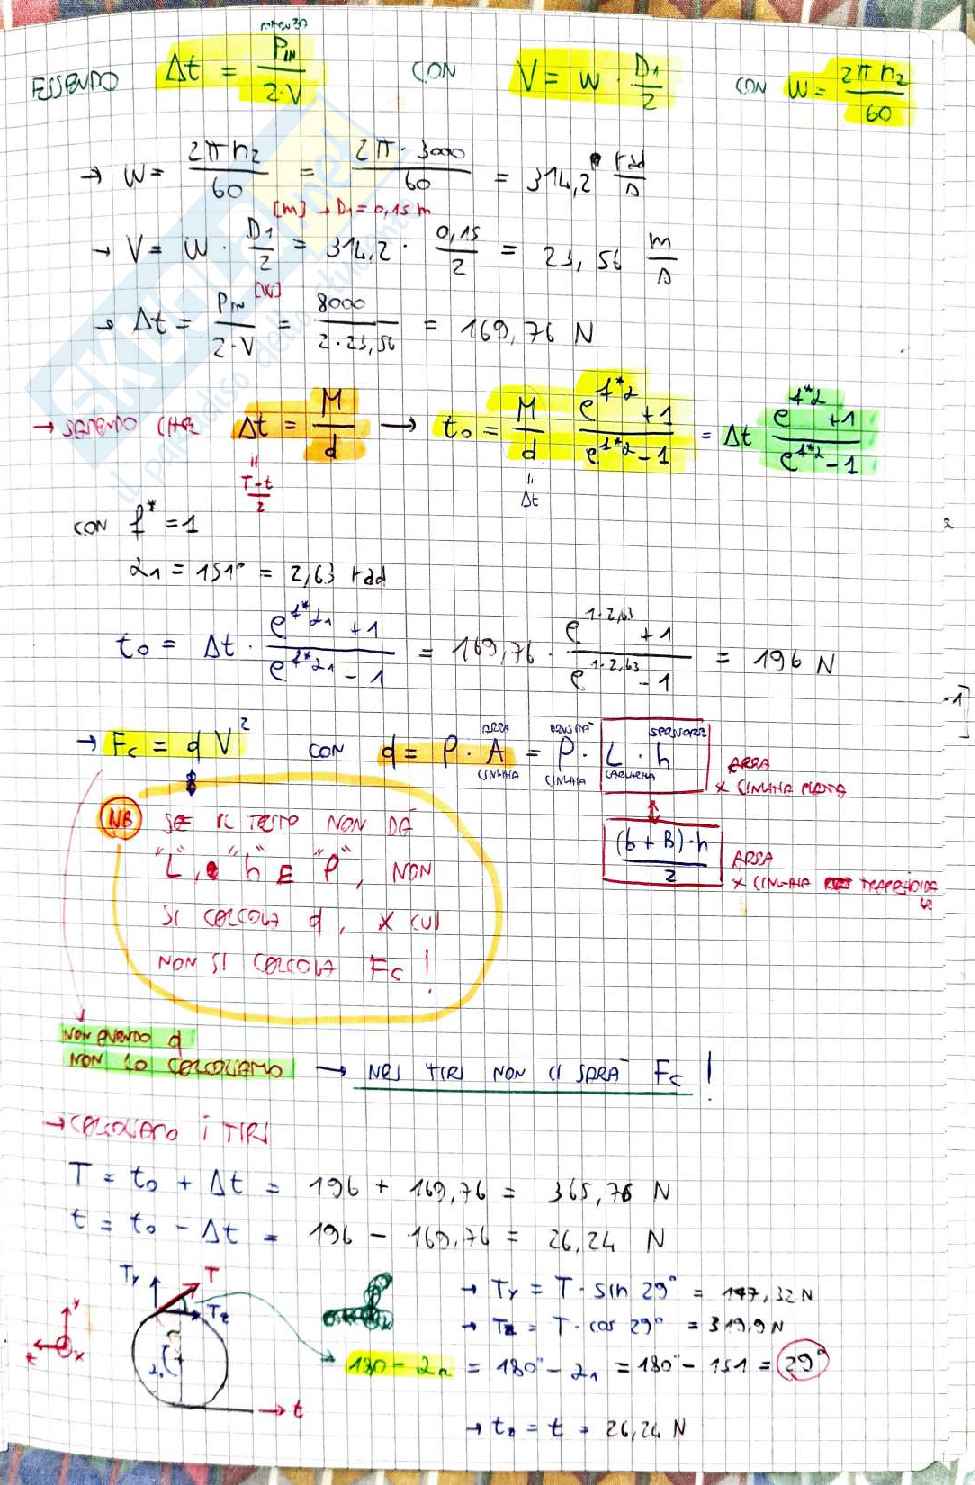 ESSENDO Δt = P_IN / 2·V CON V = W · D1/2 CON W = 2π n2 / 60
→ W = 2π n2 / 60 = 2π · 3000 / 60 = 314,2 rad/s
[m] → D1 = 0,15 m
→ V = W · D1/2 = 314,2 · 0,15/2 = 23,56 m/s
[W]
→ Δt = P_IN / 2·V = 8000 / 2·23,56 = 169,76 N
→ Δt = M/d → t0 = M/d (e^{f*α} + 1)/(e^{f*α} - 1) = Δt (e^{f*α} + 1)/(e^{f*α} - 1)
= (T-t)/2
= Δt
CON f* = 1
α1 = 151° = 2,63 rad
t0 = Δt · (e^{f*α1} + 1)/(e^{f*α1} - 1) = 169,76 · (e^{1·2,63} + 1)/(e^{1·2,63} - 1) = 196 N
→ Fc = q V² CON q = ρ · A = ρ · L · h
AREA CINGHIA
DENSITÀ CINGHIA
SPESSORE
LARGHEZZA
AREA
X CINGHIA PIATTA
(b + B)·h / 2
AREA
X CINGHIA TRAPEZOIDALE
NB SE IL TESTO NON DÀ
"L", "h" E "ρ", NON
SI CALCOLA q, X CUI
NON SI CALCOLA Fc !
NON AVENDO q
NON LO CALCOLIAMO → NEI TIRI NON CI SARÀ Fc !
→ CALCOLIAMO I TIRI
T = t0 + Δt = 196 + 169,76 = 365,76 N
t = t0 - Δt = 196 - 169,76 = 26,24 N
Ty T Tz
y z x
α1
t
→ Ty = T · sin 29° = 177,32 N
→ Tz = T · cos 29° = 319,9 N
→ 180 - α1 = 180° - α1 = 180° - 151 = 29°
→ tz = t = 26,24 N